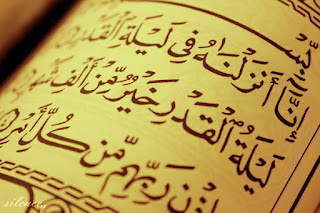 بِسْ
إِنَّآ أَنزَلْنَٰهُ فِى لَيْلَةِ ٱلْقَدْرِ
لَيْلَةُ ٱلْقَدْرِ خَيْرٌ مِّنْ أَلْفِ شَهْرٍ
إِذْنِ رَبِّهِم مِّن كُلِّ أَمْرٍ
silence..